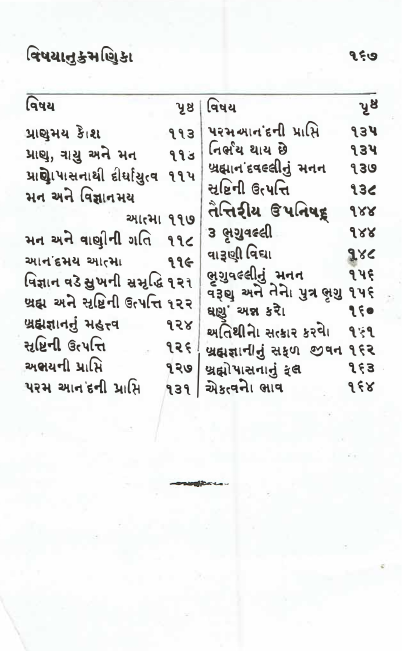 વિષયાનુક્રમણિકા ૧૬૭
વિષય પૃષ્ઠ
પ્રાણુમય કોશ ૧૧૩
પ્રાણુ, વાયુ અને મન ૧૧૩
પ્રાણોપાસનાથી દીર્ઘાયુત્વ ૧૧૫
મન અને વિજ્ઞાનમય
આત્મા ૧૧૭
મન અને વાણીની ગતિ ૧૧૮
આનંદમય આત્મા ૧૧૯
વિજ્ઞાન વડે સુખની સમૃદ્ધિ ૧૨૧
બ્રહ્મ અને સૃષ્ટિની ઉત્પત્તિ ૧૨૨
બ્રહ્મજ્ઞાનનું મહત્ત્વ ૧૨૪
સૃષ્ટિની ઉત્પત્તિ ૧૨૬
અભયની પ્રાપ્તિ ૧૨૭
પરમ આનંદની પ્રાપ્તિ ૧૩૧
વિષય પૃષ્ઠ
પરમઆનંદની પ્રાપ્તિ ૧૩૫
નિર્ભય થાય છે ૧૩૫
બ્રહ્માનંદવલ્લીનું મનન ૧૩૭
સૃષ્ટિની ઉત્પત્તિ ૧૩૮
તૈત્તિરીય ઉપનિષદ્ ૧૪૪
૩ ભૃગુવલ્લી ૧૪૪
વારૂણી વિદ્યા ૧૪૮
ભૃગુવલ્લીનું મનન ૧૫૬
વરૂણ અને તેનો પુત્ર ભૃગુ ૧૫૬
ઘણું અન્ન કરો ૧૬૦
અતિથીનો સત્કાર કરવો ૧૬૧
બ્રહ્મજ્ઞાનીનું સફળ જીવન ૧૬૨
બ્રહ્મોપાસનાનું ફલ ૧૬૩
એકત્વનો ભાવ ૧૬૪